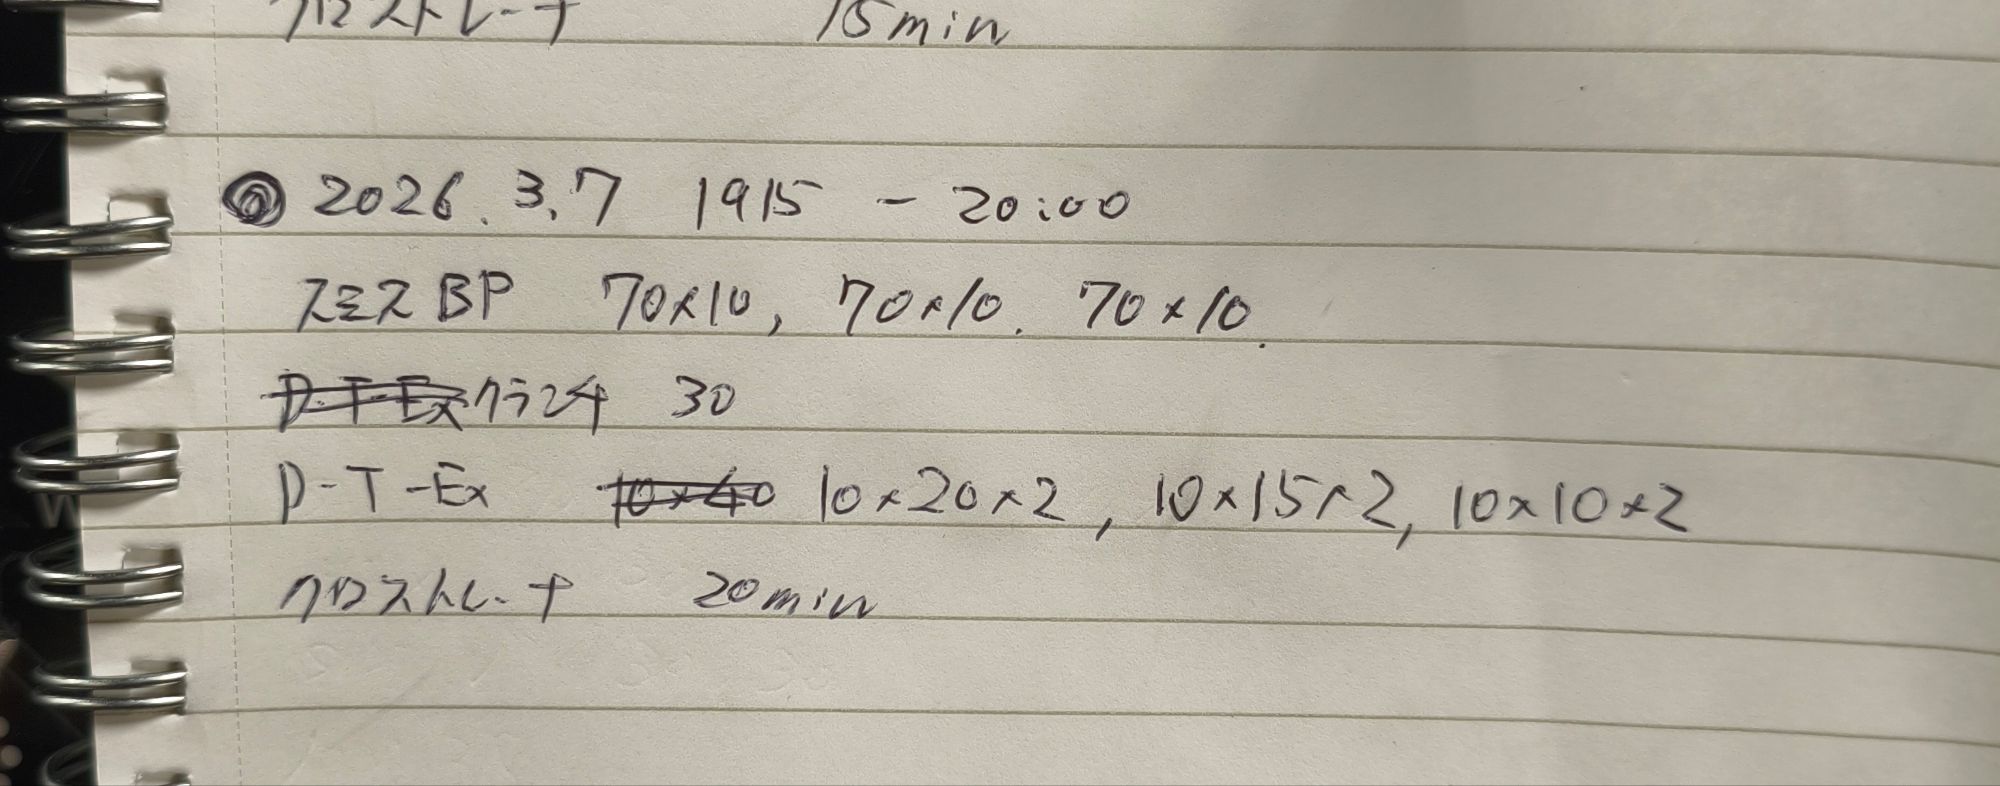 クロストレーナ 15min
◎ 2026.3.7 1915 - 20:00
スミスBP 70×10, 70×10. 70×10.
D-T-Ex クランチ 30
D-T-Ex 10×40 10×20×2, 10×15×2, 10×10×2
クロストレーナ 20min